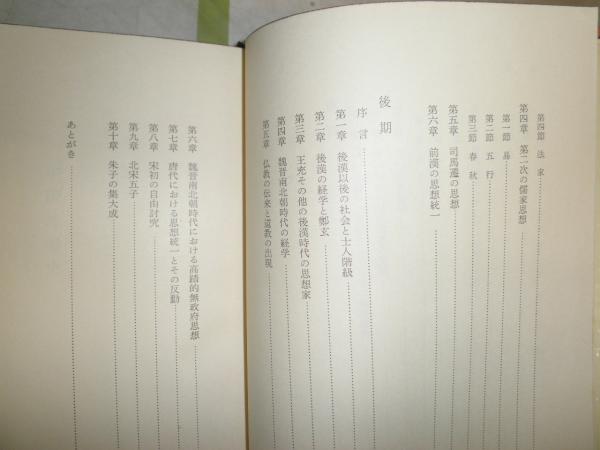 第四節 法家
第四章 第二次の儒家思想
第一節 易
第二節 五行
第三節 春秋
第五章 司馬遷の思想
第六章 前漢の思想統一
後期
序言
第一章 後漢以後の社会と士人階級
第二章 後漢の経学と鄭玄
第三章 王充その他の後漢時代の思想家
第四章 魏晋南北朝時代の経学
第五章 仏教の伝来と道教の出現
第六章 魏晋南北朝時代における高蹈的無政府思想
第七章 唐代における思想統一とその反動
第八章 宋初の自由討究
第九章 北宋五子
第十章 朱子の集大成
あとがき